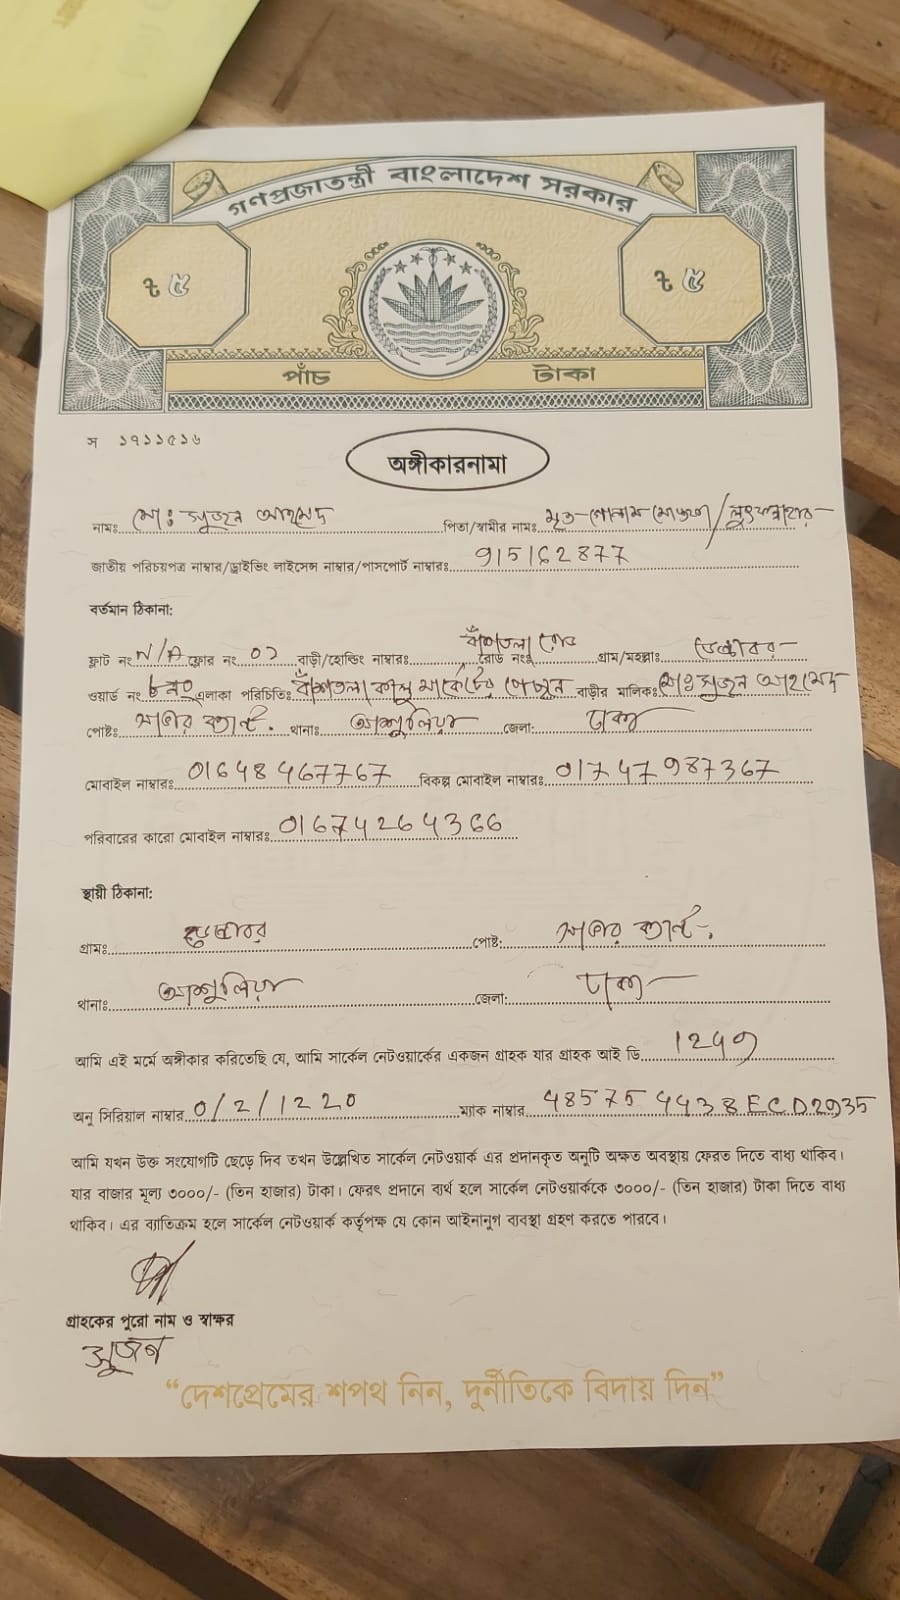 গণপ্রজাতন্ত্রী বাংলাদেশ সরকার
৳ ৫ ৳ ৫
পাঁচ টাকা
স ১৭১১৫১৬
অঙ্গীকারনামা
নামঃ মোঃ সুজন আহমেদ পিতা/স্বামীর নামঃ মৃত- গোলাম মোস্তফা / লুৎফন্নাহার
জাতীয় পরিচয়পত্র নাম্বার/ড্রাইভিং লাইসেন্স নাম্বার/পাসপোর্ট নাম্বারঃ 915162877
বর্তমান ঠিকানা:
ফ্লাট নং N/A ফ্লোর নং ০১ বাড়ী/হোল্ডিং নাম্বারঃ রোড নংঃ বাঁশতলা রোড গ্রাম/মহল্লাঃ
ওয়ার্ড নং ৮নং এলাকা পরিচিতিঃ বাঁশতলা কালু মার্কেটের পেছনে বাড়ীর মালিকঃ মোঃ সুজন আহমেদ
পোষ্টঃ থানাঃ আশুলিয়া জেলা: ঢাকা
মোবাইল নাম্বারঃ 01648467767 বিকল্প মোবাইল নাম্বারঃ 01747987367
পরিবারের কারো মোবাইল নাম্বারঃ 01674264366
স্থায়ী ঠিকানা:
গ্রামঃ পোষ্ট:
থানাঃ আশুলিয়া জেলা: ঢাকা
আমি এই মর্মে অঙ্গীকার করিতেছি যে, আমি সার্কেল নেটওয়ার্কের একজন গ্রাহক যার গ্রাহক আই ডি 1249
অনু সিরিয়াল নাম্বার 0/2/1220 ম্যাক নাম্বার 485754438ECD2935
আমি যখন উক্ত সংযোগটি ছেড়ে দিব তখন উল্লেখিত সার্কেল নেটওয়ার্ক এর প্রদানকৃত অনুটি অক্ষত অবস্থায় ফেরত দিতে বাধ্য থাকিব।
যার বাজার মূল্য ৩০০০/- (তিন হাজার) টাকা। ফেরৎ প্রদানে ব্যর্থ হলে সার্কেল নেটওয়ার্ককে ৩০০০/- (তিন হাজার) টাকা দিতে বাধ্য
থাকিব। এর ব্যতিক্রম হলে সার্কেল নেটওয়ার্ক কর্তৃপক্ষ যে কোন আইনানুগ ব্যবস্থা গ্রহণ করতে পারবে।
গ্রাহকের পুরো নাম ও স্বাক্ষর
সুজন
“দেশপ্রেমের শপথ নিন, দুর্নীতিকে বিদায় দিন”